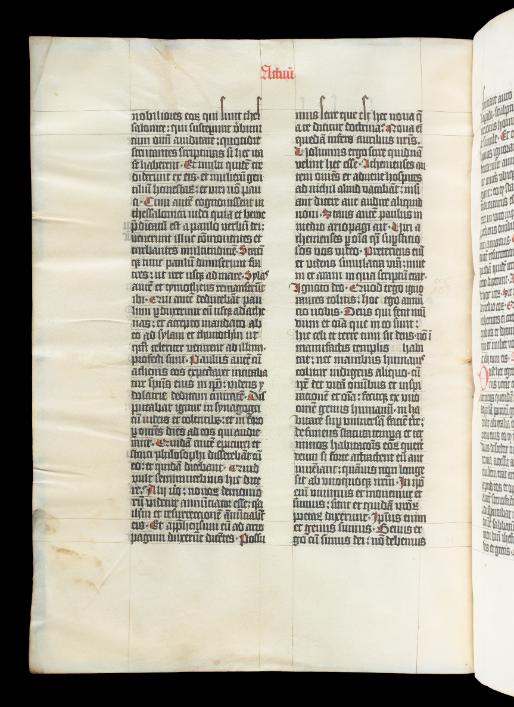 Actuū
nobiliores eoꝝ qui sunt thes
salonice: qui susceperūt ṽbum
cum oīni auiditate: quotidie
scrutantes scripturas si hec ita
se haberent. Et multi quidē cre
diderunt ex eis: et mulierū gen
tiliū honestaꝝ: et viri nō pau
ci. Cum autē cognouissent in
thessalonica iudei quia et beroe
p̄dicatū est a paulo verbū dei:
venerunt et illuc cōmouentes et
turbantes multitudinē. Statī
qꝫ tunc paulū dimiserunt fra
tres: ut iret usqꝫ ad mare. Sylas
autē et tymotheus remanserūt
ibi. Qui autē deducebāt pau
lum ꝑduxerunt eū usqꝫ ad athe
nas: et accepto mandato ab
eo ad sylam et thymotheū ut
ꝙ̄ celeriter venirent ad illum:
profecti sunt. Paulus autē cū
athenis eos expectaret incitaba
tur spūs eius in ip̄o: videns y
dolatrie deditam ciuitatē. Dis
putabat igitur in synagoga
cū iudeis et colentibꝫ: et in foro
ꝑ omnes dies ad eos qui audie
rant. Quidā autē epicurei et
stoici philosophi disserebāt cū
eo: et quidā dicebant. Quid
vult seminiuerbius hic dice
re? Alij ṽo: nouoꝝ demonio
rū videtur annūciator esse: qꝛ
ihesum et resurrectionē annūciabat
eis. Et apꝑhensum eū ad ario
pagum duxerūt dicētes. Possu
mus scire que est hec noua q̄
a te dicitur doctrina? Noua eī
quedā infers auribus nr̄is.
Uolumus ergo scire quidnā
velint hec esse. Athenienses au
tem omēs et aduene hospites
ad nichil aliud vacabāt: nisi
aut dicere aut audire aliquid
noui. Stans autē paulus in
medio ariopagi ait. Uiri a
thenienses ꝑ oīa q̄si supersticio
sos vos video. Preteriens eī
et videns simulacra vr̄a inueni
et aram in qua scriptū erat.
Ignoto deo. Quod ergo igno
rantes colitis: hoc ego annū
cio vobis. Deus qui fecit mū
dum et oīa que in eo sunt:
hic celi et terre cum sit dn̄s: nō ī
manufactis templis habi
tat: nec manibus humanis
colitur indigens aliquo: cū
ip̄e det vitā om̄ibus et inspi
racionē et oīa: fecitqꝫ ex vno
omē genus humanū inha
bitare suꝑ vniuersā faciē tr̄e:
definiens statuta tempora et ter
minos habitacōnis eoꝝ quere
re deum si forte attractent eū aut
inueniant: quāuis non longe
sit ab vnoquoqꝫ nr̄m. In ip̄o
enī viuimus et mouemur et
sumus: sicut et quidā vr̄oꝝ
poetaꝝ dixerunt. Ip̄ius enim
et genus sumus. Genus er
go cū simus dei: nō debemus